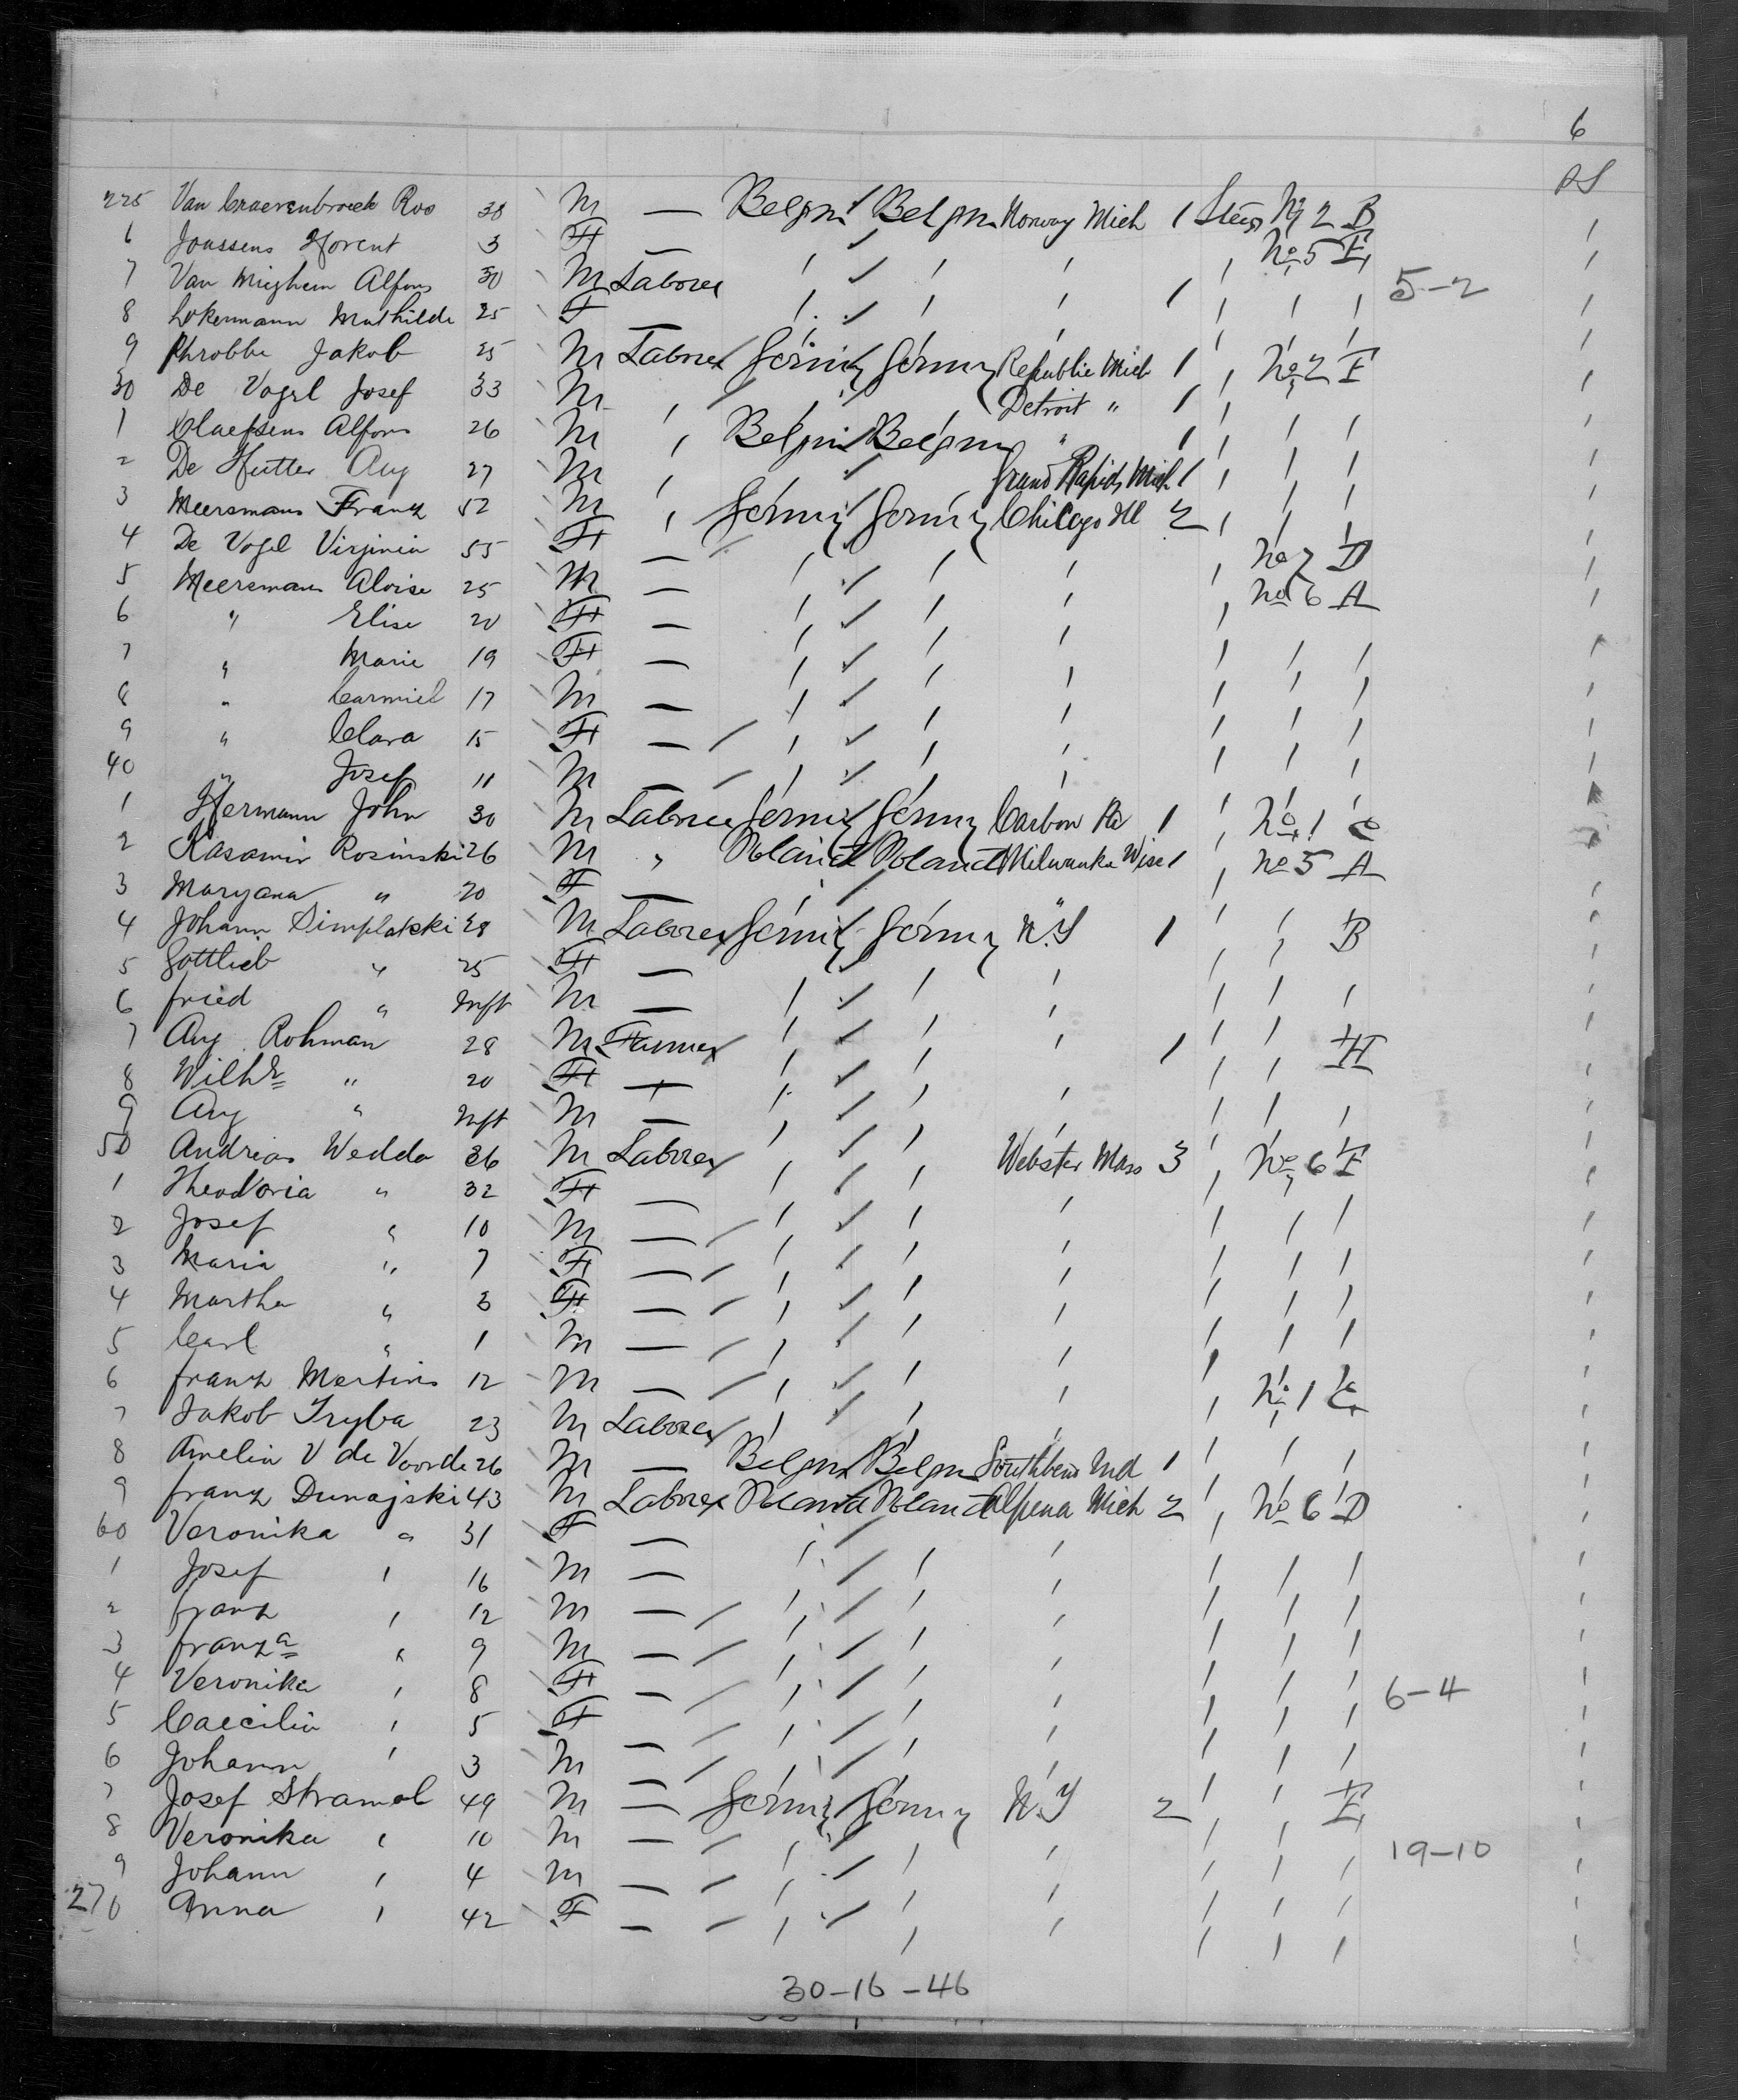 6
PS
225 Van Craevenbroeck Ros 38 M — Belgm Belgm Norway Mich 1 Steeg No 2 B
6 Janssens Florent 3 F — No 5 E
7 Van Mieghem Alfons 30 M Laborer 1 5-2
8 Lokermann Mathilde 25 F —
9 Phrobbe Jakob 25 M Laborer Germy Germy Republic Mich 1 No 2 E
30 De Vogel Josef 33 M Detroit " 1
1 Claessens Alfons 26 M Belgm Belgm " 1
2 De Hutter Aug 27 M Grand Rapids Mich 1
3 Meersmans Franz 52 M Germy Germy Chicago Ill 2
4 De Vogel Virginia 55 F — No 7 D
5 Meersmans Aloise 25 M — No 6 A
6 " Elise 20 F —
7 " Marie 19 F —
8 " Carmiel 17 M —
9 " Clara 15 F —
40 " Josef 11 M —
1 Hermann John 30 M Laborer Germy Germy Carbon Pa 1 No 1 C
2 Kasamir Rosinski 26 M " Poland Poland Milwauke Wisc 1 No 5 A
3 Maryana " 20 F —
4 Johann Simplatski 28 M Laborer Germy Germy N.Y 1 B
5 Gottlieb " 25 F —
6 fried " Inft M —
7 Aug Rohman 28 M Farmer 1 H
8 Wilhe " 20 F —
9 Aug " Inft M —
50 Andreas Wedda 36 M Laborer Webster Mass 3 No 6 E
1 Theodoria " 32 F —
2 Josef " 10 M —
3 Maria " 7 F —
4 Martha " 3 F —
5 Carl " 1 M —
6 franz Martinis 12 M — No 1 C
7 Jakob Tryba 23 M Laborer
8 Amelia V de Voorde 26 M — Belgm Belgm Southbend Ind 1
9 franz Dunajski 43 M Laborer Poland Poland Alpena Mich 2 No 6 D
60 Veronika " 31 F —
1 Josef " 16 M —
2 franz " 12 M —
3 franza " 9 M —
4 Veronika " 8 F — 6-4
5 Caecilia " 5 F —
6 Johann " 3 M —
7 Josef Stramel 49 M — Germy Germy N.Y 2 E
8 Veronika " 10 M — 19-10
9 Johann " 4 M —
270 Anna " 42 F —
30-16-46